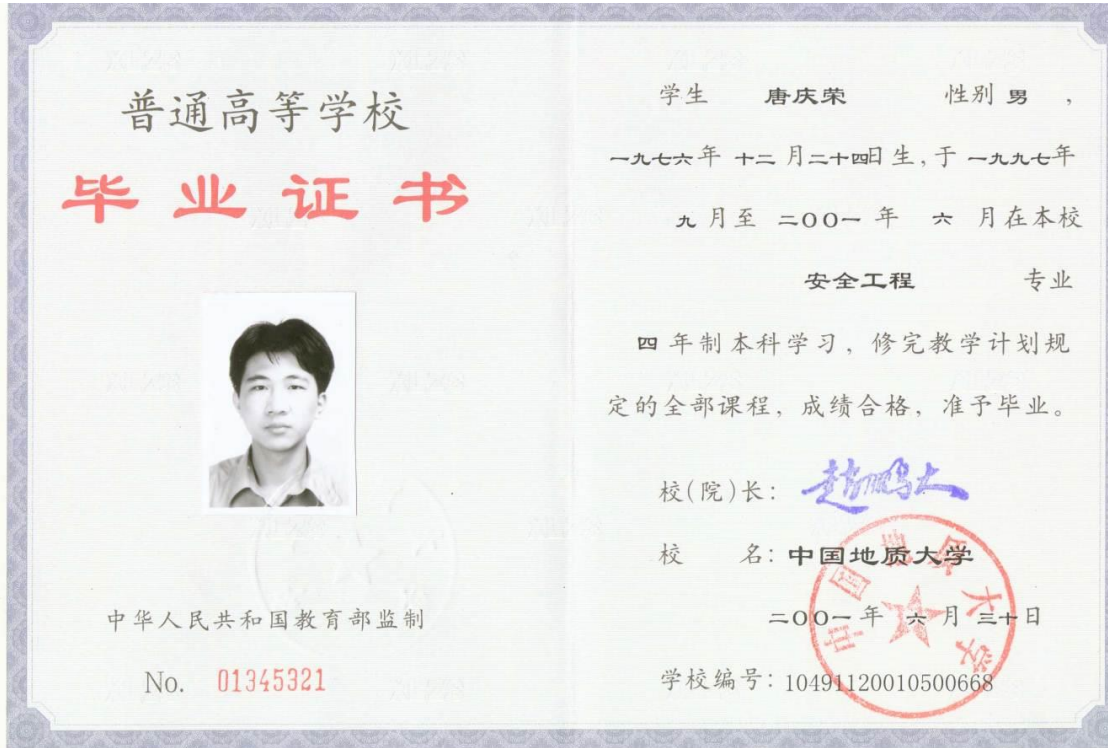 普通高等学校
毕业证书
中华人民共和国教育部监制
No. 01345321
学生 唐庆荣 性别 男 ,
一九七六年 十二月二十四日生,于 一九九七年
九月至 二〇〇一 年 六 月在本校
安全工程 专业
四 年制本科学习, 修完教学计划规
定的全部课程, 成绩合格, 准予毕业。
校(院)长: 赵鹏大
校 名: 中国地质大学
二〇〇一年 六 月 三十日
学校编号: 10491120010500668
中国地质大学